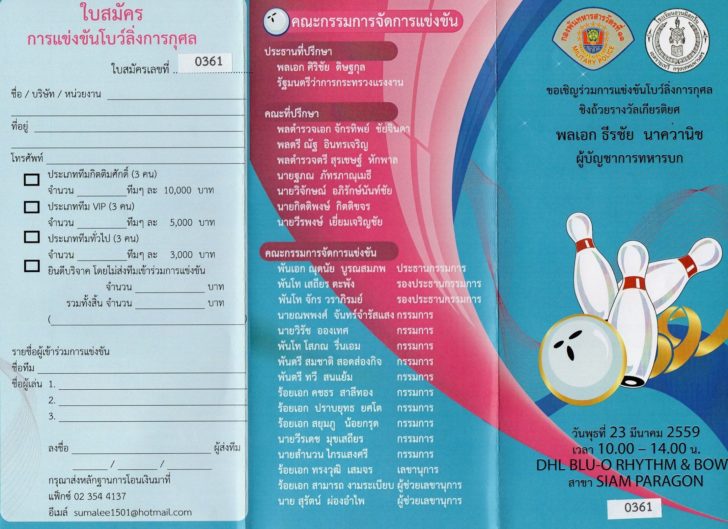 ใบสมัคร
การแข่งขันโบว์ลิ่งการกุศล
ใบสมัครเลขที่ 0361
ชื่อ / บริษัท / หน่วยงาน
ที่อยู่
โทรศัพท์
ประเภททีมกิตติมศักดิ์ (3 คน)
จำนวน ทีมๆ ละ 10,000 บาท
ประเภททีม VIP (3 คน)
จำนวน ทีมๆ ละ 5,000 บาท
ประเภททีมทั่วไป (3 คน)
จำนวน ทีมๆ ละ 3,000 บาท
ยินดีบริจาค โดยไม่ส่งทีมเข้าร่วมการแข่งขัน
จำนวน บาท
รวมทั้งสิ้น จำนวน บาท
( )
รายชื่อผู้เข้าร่วมการแข่งขัน
ชื่อทีม
ชื่อผู้เล่น 1.
2.
3.
ลงชื่อ ผู้ส่งทีม
/ /
กรุณาส่งหลักฐานการโอนเงินมาที่
แฟ็กซ์ 02 354 4137
อีเมล์ sumalee1501@hotmail.com
คณะกรรมการจัดการแข่งขัน
ประธานที่ปรึกษา
พลเอก ศิริชัย ดิษฐกุล
รัฐมนตรีว่าการกระทรวงแรงงาน
คณะที่ปรึกษา
พลตำรวจเอก จักรทิพย์ ชัยจินดา
พลตรี ณัฐ อินทรเจริญ
พลตำรวจตรี สุรเชษฐ์ หักพาล
นายฐภณ ภัทรภาณุเมธี
นายวิจักษณ์ อภิรักษ์นันท์ชัย
นายกิตติพงษ์ กิตติขจร
นายวีรพงษ์ เยี่ยมเจริญชัย
คณะกรรมการจัดการแข่งขัน
พันเอก ณุดนัย บูรณสมภพ ประธานกรรมการ
พันโท เสถียร ตะพัง รองประธานกรรมการ
พันโท จักร วราภิรมย์ รองประธานกรรมการ
นายณพพงศ์ จันทร์จำรัสแสง กรรมการ
นายวิรัช อองเทศ กรรมการ
พันโท โสภณ รื่นเอม กรรมการ
พันตรี สมชาติ สอดส่องกิจ กรรมการ
พันตรี ทวี สนแย้ม กรรมการ
ร้อยเอก คชธร สาลีทอง กรรมการ
ร้อยเอก ปราบยุทธ ยศโต กรรมการ
ร้อยเอก สยุมภู น้อยกรุด กรรมการ
นายวีรเดช มุขเสถียร กรรมการ
นายสำนวน ไกรแสงศรี กรรมการ
ร้อยเอก ทรงวุฒิ เสมจร เลขานุการ
ร้อยเอก สามารถ งามระเบียบ ผู้ช่วยเลขานุการ
นาย สุรัตน์ ผ่องอำไพ ผู้ช่วยเลขานุการ
กองพันทหารสารวัตรที่ ๑๑
MILITARY POLICE
ขอเชิญร่วมการแข่งขันโบว์ลิ่งการกุศล
ชิงถ้วยรางวัลเกียรติยศ
พลเอก ธีรชัย นาควานิช
ผู้บัญชาการทหารบก
วันพุธที่ 23 มีนาคม 2559
เวลา 10.00 – 14.00 น.
DHL BLU-O RHYTHM & BOW
สาขา SIAM PARAGON
0361